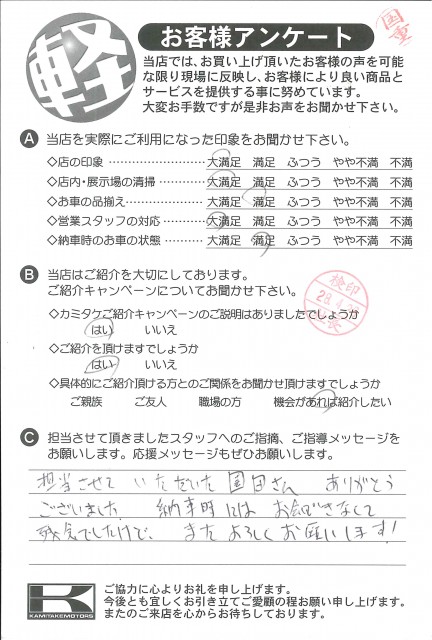 軽
お客様アンケート
当店では、お買い上げ頂いたお客様の声を可能
な限り現場に反映し、お客様により良い商品と
サービスを提供する事に努めています。
大変お手数ですが是非お声をお聞かせ下さい。
A 当店を実際にご利用になった印象をお聞かせ下さい。
◇店の印象 ………………………… 大満足 満足 ふつう やや不満 不満
◇店内・展示場の清掃 …………… 大満足 満足 ふつう やや不満 不満
◇お車の品揃え …………………… 大満足 満足 ふつう やや不満 不満
◇営業スタッフの対応 …………… 大満足 満足 ふつう やや不満 不満
◇納車時のお車の状態 …………… 大満足 満足 ふつう やや不満 不満
B 当店はご紹介を大切にしております。
ご紹介キャンペーンについてお聞かせ下さい。
検印
◇カミタケご紹介キャンペーンのご説明はありましたでしょうか
はい いいえ
◇ご紹介を頂けますでしょうか
はい いいえ
◇具体的にご紹介頂ける方とのご関係をお聞かせ頂けますでしょうか
ご親族 ご友人 職場の方 機会があれば紹介したい
C 担当させて頂きましたスタッフへのご指摘、ご指導メッセージを
お願いします。応援メッセージもぜひお願いします。
担当させて いただいた 国田さん ありがとう
ございました 納車時には お会いできなくて
残念でしたけど、 また よろしく お願いします!
K
KAMITAKEMOTORS
ご協力に心よりお礼を申し上げます。
今後とも宜しくお引き立てご愛顧の程お願い申し上げます。
またのご来店を心からお待ちしております。